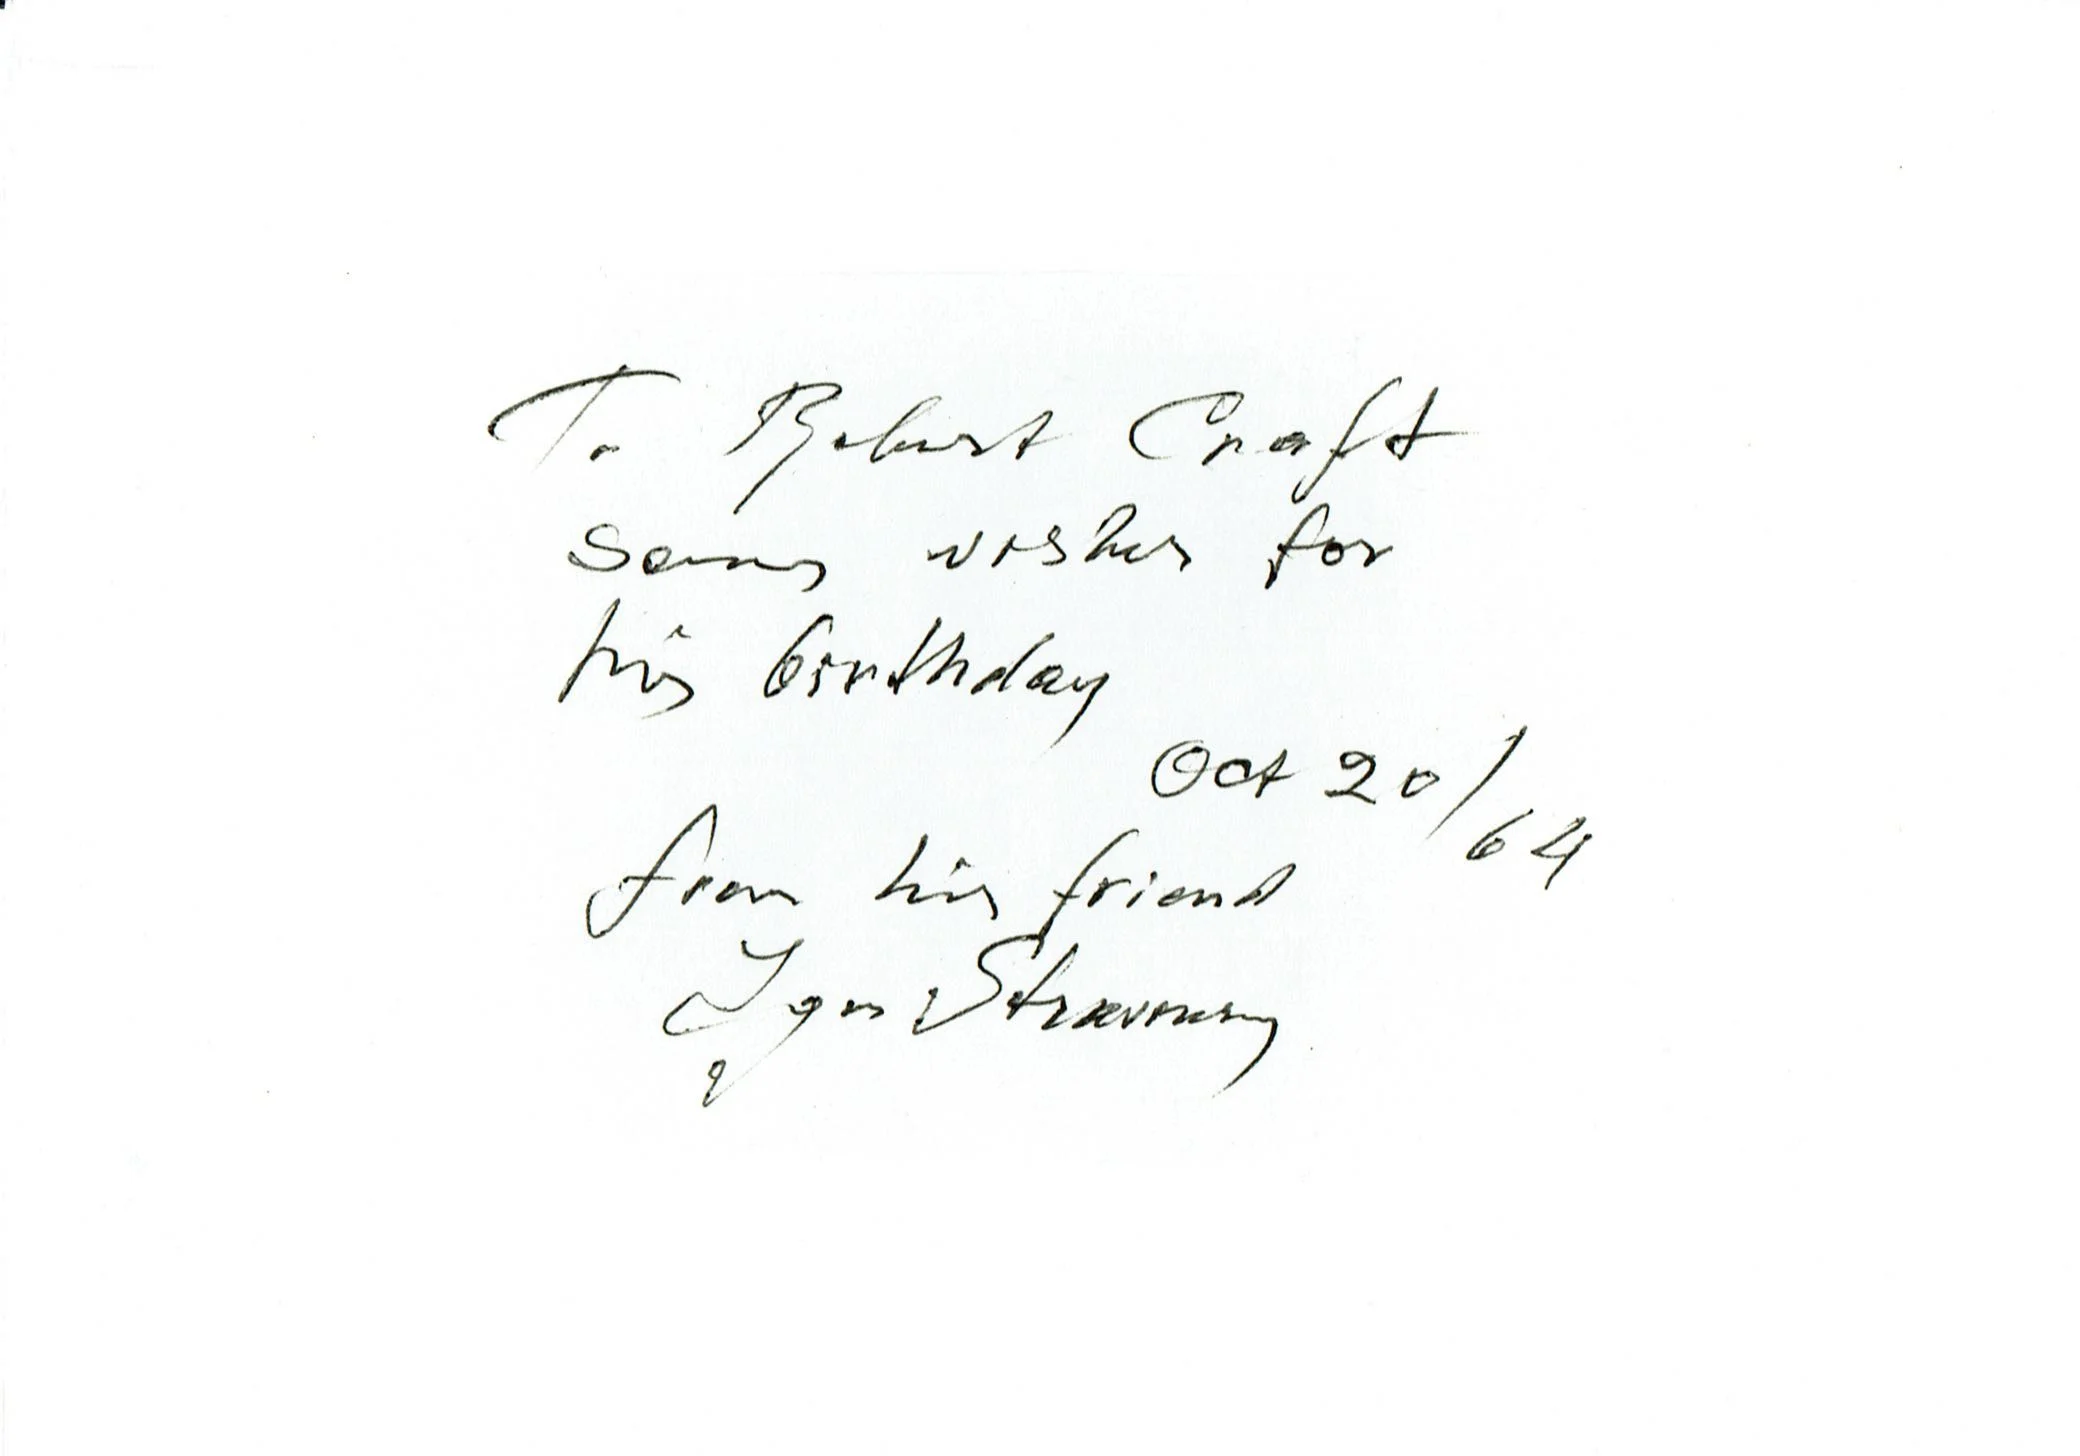 To Robert Craft
some wishes for
his birthday
Oct 20/64
from his friend
Igor Stravinsky